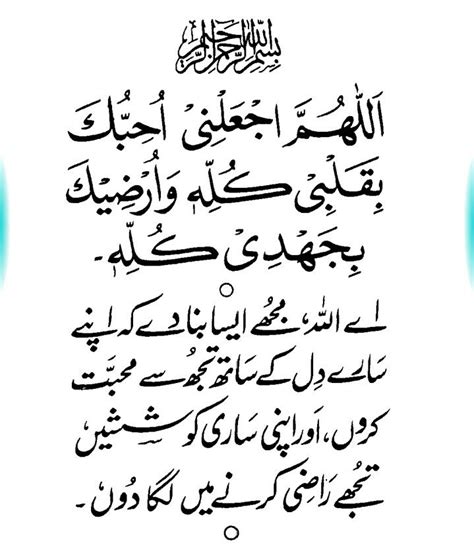 بِسْمِ اللهِ الرَّحْمٰنِ الرَّحِيْمِ
اَللّٰهُمَّ اجْعَلْنِیْ اُحِبُّكَ
بِقَلْبِیْ كُلِّهٖ وَاُرْضِیْكَ
بِجَهْدِیْ كُلِّهٖ۔
اے اللہ، مجھے ایسا بنا دے کہ اپنے
سارے دِل کے ساتھ تجھ سے محبّت
کروں، اور اپنی ساری کوششیں
تجھے رَاضِی کرنے میں لگا دُوں۔